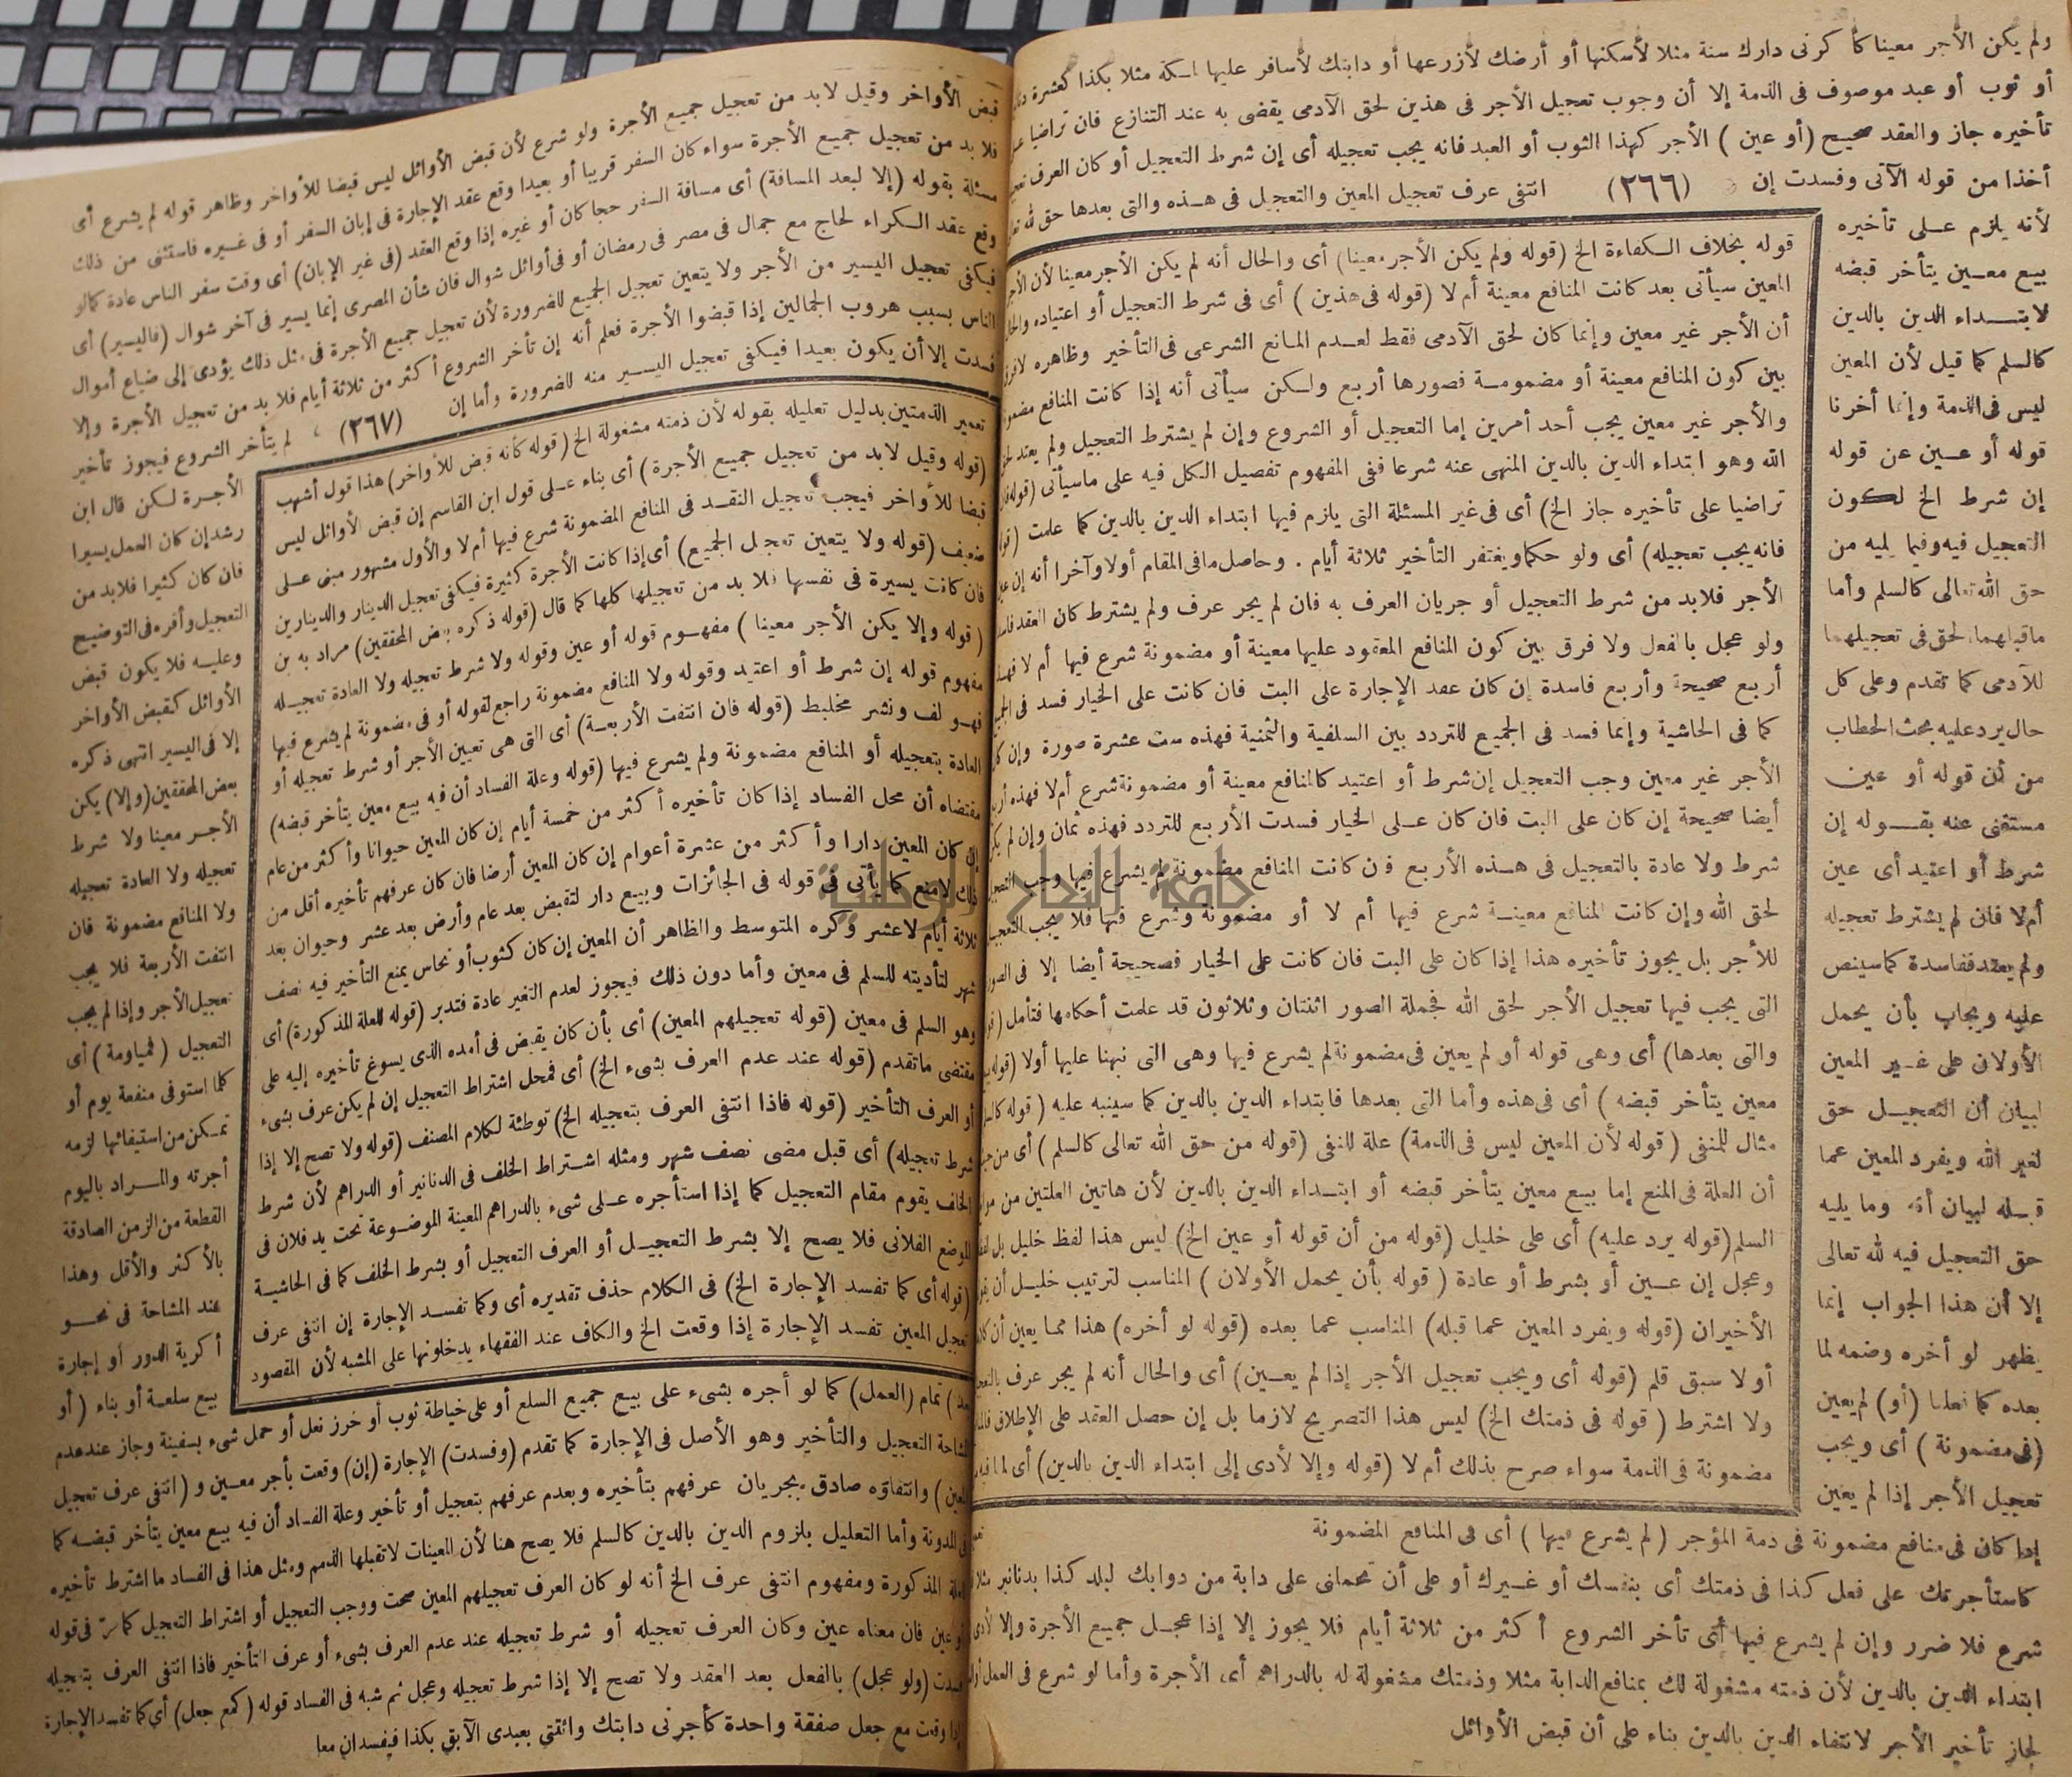 ولم يكن الأجر معينا كأكرنى دارك سنة مثلا لأسكنها أو أرضك لأزرعها أو دابتك لأسافر عليها لمكة مثلا بكذا كعشرة
أو ثوب أو عبد موصوف فى الذمة إلا أن وجوب تعجيل الأجر فى هذين لحق الآدمى يقضى به عند التنازع فان تراضيا
تأخيره جاز والعقد صحيح (أو عين ) الأجر كهذا الثوب أو العبد فانه يجب تعجيله أى إن شرط التعجيل أو كان العرف
أخذا من قوله الآتى وفسدت إن (٢٦٦) انتفى عرف تعجيل المعين والتعجيل فى هـذه والتى بعدها حق لله
لأنه يلزم عـلى تأخيره
بيع معـين يتأخر قبضه
لابتـداء الدين بالدين
كالسلم كما قيل لأن المعين
ليس فى الذمة وإنما أخرنا
قوله أو عـين عن قوله
إن شرط الخ لكون
التعجيل فيه وفيما يليه من
حق الله تعالى كالسلم وأما
ماقبلهما الحق فى تعجيلهما
للآدمى كما تقدم وعلى كل
حال يرد عليه بحث الحطاب
من أن قوله أو عين
مستغنى عنه بقـوله إن
شرط أو اعتيد أى عين
أم لا فان لم يشترط تعجيله
ولم يعتد ففاسدة كما سينص
عليه ويجاب بأن يحمل
الأولان على غـير المعين
لبيان أن التعجيـل حق
لغير الله ويفرد المعين عما
قبـله لبيان أنه وما يليه
حق التعجيل فيه لله تعالى
إلا أن هذا الجواب إنما
يظهر لو أخره وضمه لما
بعده كما فعلنا (أو) لم يعين
(فى مضمونة ) أى ويجب
تعجيل الأجر إذا لم يعين
قوله بخلاف الـكفاءة الخ (قوله ولم يكن الأجر معينا) أى والحال أنه لم يكن الأجر معينا لأن
المعين سيأتى بعد كانت المنافع معينة أم لا (قوله فى هذين ) أى فى شرط التعجيل أو اعتياده
أن الأجر غير معين وإنما كان لحق الآدمى فقط لعـدم المانع الشرعى فى التأخير وظاهره
بين كون المنافع معينة أو مضمومـة فصورها أربع ولـكن سيأتى أنه إذا كانت المنافع
والأجر غير معين يجب أحد أمرين إما التعجيل أو الشروع وإن لم يشترط التعجيل ولم يعتد
الله وهو ابتداء الدين بالدين المنهى عنه شرعا ففى المفهوم تفصيل الكل فيه على ماسيأتى
تراضيا على تأخيره جاز الخ) أى فى غير المسئلة التى يلزم فيها ابتداء الدين بالدين كما علمت
فانه يجب تعجيله) أى ولو حكما ويغتفر التأخير ثلاثة أيام . وحاصل مافى المقام أولا وآخرا أنه إن
الأجر فلابد من شرط التعجيل أو جريان العرف به فان لم يجر عرف ولم يشترط كان العقد
ولو عجل بالفعل ولا فرق بين كون المنافع المعقود عليها معينة أو مضمونة شرع فيها أم لا
أربع صحيحة وأربع فاسدة إن كان عقد الإجارة على البت فان كانت على الخيار فسد فى
كما فى الحاشية وإنما فسد فى الجميع للتردد بين السلفية والثمنية فهذه ست عشرة صورة وإن
الأجر غير معين وجب التعجيل إن شرط أو اعتيد كالمنافع معينة أو مضمونة شرع أم لا فهذه
أيضا صحيحة إن كان على البت فان كان عـلى الخيار فسدت الأربع للتردد فهذه ثمان وإن لم
شرط ولا عادة بالتعجيل فى هـذه الأربع فان كانت المنافع مضمونة لم يشرع فيها وجب
لحق الله وإن كانت المنافع معينـة شرع فيها أم لا أو مضمونة وشرع فيها فلا يجب
للأجر بل يجوز تأخيره هذا إذا كان على البت فان كانت على الخيار فصحيحة أيضا إلا فى
التى يجب فيها تعجيل الأجر لحق الله فجملة الصور اثنتان وثلاثون قد علمت أحكامها فتأمل
والتى بعدها) أى وهى قوله أو لم يعين فى مضمونة لم يشرع فيها وهى التى نبهنا عليها أولا
معين يتأخر قبضه ) أى فى هذه وأما التى بعدها فابتداء الدين بالدين كما سينبه عليه
مثال للمنفى ( قوله لأن المعين ليس فى الذمة) علة للنفى (قوله من حق الله تعالى كالسلم ) أى
أن العلة فى المنع إما بيع معين يتأخر قبضه أو ابتـداء الدين بالدين لأن هاتين العلتين من
السلم (قوله يرد عليه) أى على خليل (قوله من أن قوله أو عين الخ) ليس هذا لفظ خليل بل
وعجل إن عـين أو بشرط أو عادة ( قوله بأن يحمل الأولان ) المناسب لترتيب خليـل أن
الأخيران (قوله ويفرد المعين عما قبله) المناسب عما بعده (قوله لو أخره) هذا مما يعين أن
أولا سبق قلم (قوله أى ويجب تعجيل الأجر إذا لم يعـين) أى والحال أنه لم يجر عرف
ولا اشترط ( قوله فى ذمتك الخ) ليس هذا التصريح لازما بل إن حصل العقد على الإطلاق
مضمونة فى الذمة سواء صرح بذلك أم لا (قوله وإلا لأدى إلى ابتداء الدين بالدين) أى
إذا كان فى منافع مضمونة فى ذمة المؤجر ( لم يشرع فيها ) أى فى المنافع المضمونة
كاستأجرتك على فعل كذا فى ذمتك أى بنفسك أو غـيرك أو على أن تحملنى على دابة من دوابك لبلد كذا بدنانير
شرع فلا ضرر وإن لم يشرع فيها أى تأخر الشروع أكثر من ثلاثة أيام فلا يجوز إلا إذا عجـل جميع الأجرة وإلا لأدى
ابتداء الدين بالدين لأن ذمته مشغولة لك بمنافع الدابة مثلا وذمتك مشغولة له بالدراهم أى الأجرة وأما لو شرع فى العمل
لجاز تأخير الأجر لانتفاء الدين بالدين بناء على أن قبض الأوائل
قبض الأواخر وقيل لابد من تعجيل جميع الأجرة ولو شرع لأن قبض الأوائل ليس قبضا للأواخر وظاهر قوله لم يشرع أى
فلا بد من تعجيل جميع الأجرة سواء كان السفر قريبا أو بعيدا وقع عقد الإجارة فى إبان السفر أو فى غـيره فاستثنى من ذلك
مسئلة بقوله (إلا لبعد المسافة) أى مسافة السفر حجا كان أو غيره إذا وقع العقد (فى غير الإبان) أى وقت سفر الناس عادة كما لو
وقع عقد الكراء لحاج مع جمال فى مصر فى رمضان أو فى أوائل شوال فان شأن المصرى إنما يسير فى آخر شوال (فاليسير) أى
فيكفى تعجيل اليسير من الأجر ولا يتعين تعجيل الجميع للضرورة لأن تعجيل جميع الأجرة فى مثل ذلك يؤدى إلى ضياع أموال
الناس بسبب هروب الجمالين إذا قبضوا الأجرة فعلم أنه إن تأخر الشروع أكثر من ثلاثة أيام فلا بد من تعجيل الأجرة وإلا
فسدت إلا أن يكون بعيدا فيكفى تعجيل اليسـير منه للضرورة وأما إن (٢٦٧) لم يتأخر الشروع فيجوز تأخير
الأجـرة لـكن قال ابن
رشد إن كان العمل يسيرا
فان كان كثيرا فلابد من
التعجيل وأقره فى التوضيح
وعليـه فلا يكون قبض
الأوائل كقبض الأواخر
إلا فى اليسير انتهى ذكره
بعض المحققين (وإلا) يكن
الأجـر معينا ولا شرط
تعجيله ولا العادة تعجيله
ولا المنافع مضمونة فان
انتفت الأربعة فلا يجب
تعجيل الأجر وإذا لم يجب
التعجيل ( فمياومة ) أى
كلما استوفى منفعة يوم أو
تمـكن من استيفائها لزمه
أجرته والمـراد باليوم
القطعة من الزمن الصادقة
بالأكثر والأقل وهذا
عند المشاحة فى نحـو
أكرية الدور أو إجارة
بيع سلعـة أو بناء ( أو
تعمير الذمتين بدليل تعليله بقوله لأن ذمته مشغولة الخ (قوله كأنه قبض للأواخر) هذا قول أشهب
(قوله وقيل لابد من تعجيل جميع الأجرة) أى بناء عـلى قول ابن القاسم إن قبض الأوائل ليس
قبضا للأواخر فيجب تعجيل النقـد فى المنافع المضمونة شرع فيها أم لا والأول مشهور مبنى عـلى
ضعيف (قوله ولا يتعين تعجيل الجميع) أى إذا كانت الأجرة كثيرة فيكفى تعجيل الدينار والدينارين
فان كانت يسيرة فى نفسها فلا بد من تعجيلها كلها كما قال (قوله ذكره بعض المحققين) مراد به بن
( قوله وإلا يكن الأجر معينا ) مفهـوم قوله أو عين وقوله ولا شرط تعجيله ولا العادة تعجيـله
مفهوم قوله إن شرط أو اعتيد وقوله ولا المنافع مضمونة راجع لقوله أو فى مضمونة لم يشرع فيها
فهـو لف ونشر مخلبط (قوله فان انتفت الأربعـة) أى التى هى تعيين الأجر أو شرط تعجيله أو
العادة بتعجيله أو المنافع مضمونة ولم يشرع فيها (قوله وعلة الفساد أن فيه بيع معين يتأخر قبضه)
مقتضاه أن محل الفساد إذا كان تأخيره أكثر من خمسة أيام إن كان المعين حيوانا وأكثر من عام
إن كان المعين دارا وأكثر من عشرة أعوام إن كان المعين أرضا فان كان عرفهم تأخيره أقل من
ذلك لامنع كما يأتى فى قوله فى الجائزات وبيع دار لتقبض بعد عام وأرض بعد عشر وحيوان بعد
ثلاثة أيام لا عشر وكره المتوسط والظاهر أن المعين إن كان كثوب أو نحاس يمنع التأخير فيه نصف
شهر لتأديته للسلم فى معين وأما دون ذلك فيجوز لعدم التغير عادة فتدبر (قوله للعلة المذكورة) أى
وهو السلم فى معين (قوله تعجيلهم المعين) أى بأن كان يقبض فى أمده الذى يسوغ تأخيره إليه على
مقتضى ماتقدم (قوله عند عدم العرف بشىء الخ) أى فمحل اشتراط التعجيل إن لم يكن عرف بشىء
أو العرف التأخير (قوله فاذا انتفى العرف بتعجيله الخ) توطئة لكلام المصنف (قوله ولا تصح إلا إذا
شرط تعجيله) أى قبل مضى نصف شهر ومثله اشـتراط الخلف فى الدنانير أو الدراهم لأن شرط
الخلف يقوم مقام التعجيل كما إذا استأجره عـلى شىء بالدراهم المعينة الموضـوعة تحت يد فلان فى
الموضع الفلانى فلا يصح إلا بشرط التعجيـل أو العرف التعجيل أو بشرط الخلف كما فى الحاشيـة
(قوله أى كما تفسد الإجارة الخ) فى الكلام حذف تقديره أى وكما تفسـد الإجارة إن انتفى عرف
تعجيل المعين تفسد الإجارة إذا وقعت الخ والكاف عند الفقهاء يدخلونها على المشبه لأن المقصود
بعد) تمام (العمل) كما لو أجره بشىء على بيع جميع السلع أو على خياطة ثوب أو خرز نعل أو حمل شىء بسفينة وجاز عند عدم
المشاحة التعجيل والتأخير وهو الأصل فى الإجارة كما تقدم (وفسدت) الإجارة (إن) وقعت بأجر معـين و (انتفى عرف تعجيل
المعين ) وانتفاؤه صادق بجريان عرفهم بتأخيره وبعدم عرفهم بتعجيل أو تأخير وعلة الفساد أن فيه بيع معين يتأخر قبضـه كما
فى المدونة وأما التعليل بلزوم الدين بالدين كالسلم فلا يصح هنا لأن المعينات لاتقبلها الذمم ومثل هذا فى الفساد ما اشترط تأخيره
للعلة المذكورة ومفهوم انتفى عرف الخ أنه لو كان العرف تعجيلهم المعين صحت ووجب التعجيل أو اشتراط التعجيل كما مرّ فى قوله
أو عين فان معناه عين وكان العرف تعجيله أو شرط تعجيله عند عدم العرف بشىء أو عرف التأخير فاذا انتفى العرف بتعجيله
فسدت (ولو عجل) بالفعل بعد العقد ولا تصح إلا إذا شرط تعجيله وعجل ثم شبه فى الفساد قوله (كمع جعل) أى كما تفسد الإجارة
إذا وقعت مع جعل صفقة واحدة كأجرنى دابتك وائتنى بعبدى الآبق بكذا فيفسدان معا
جامعة النجاح الوطنية